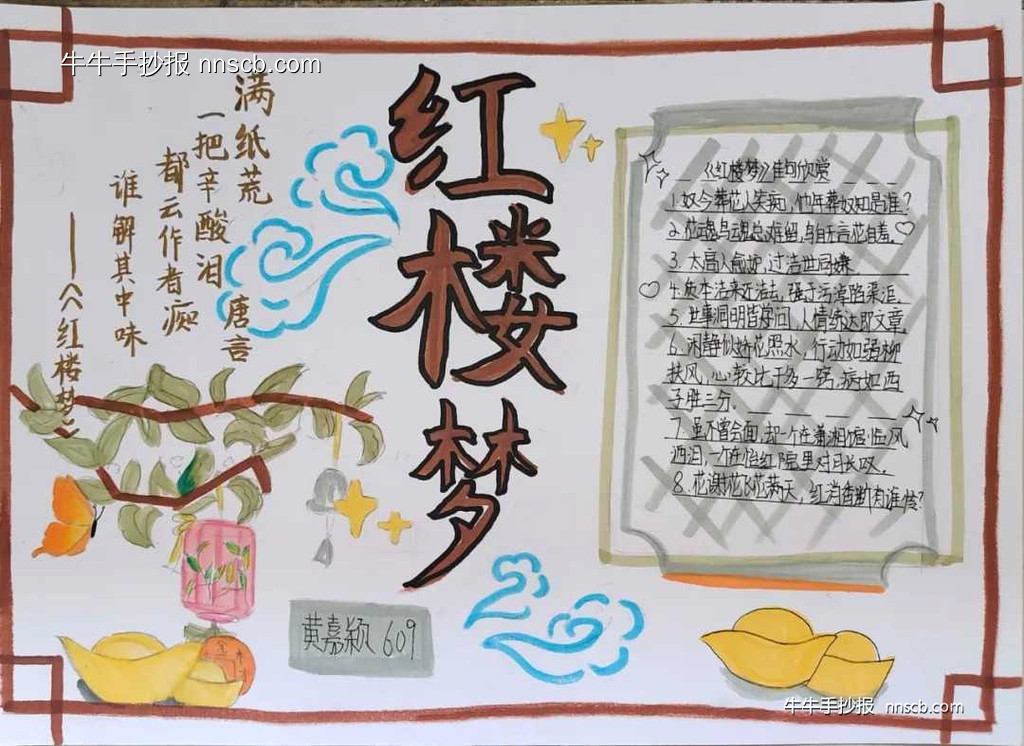 牛牛手抄报 nnscb.com
红楼梦
满纸荒唐言
一把辛酸泪
都云作者痴
谁解其中味
——《红楼梦》
《红楼梦》佳句欣赏
1.奴今葬花人笑痴,他年葬奴知是谁?
2.花魂鸟魂总难留,鸟自无言花自羞。
3.太高人愈妒,过洁世同嫌
4.质本洁来还洁去,强于污淖陷渠沟。
5.世事洞明皆学问,人情练达即文章
6.闲静似娇花照水,行动如弱柳
扶风,心较比干多一窍,病如西
子胜三分.
7.虽不曾会面,却一个在潇湘馆临风
洒泪,一个在怡红院里对月长叹.
8.花谢花飞花满天,红消香断有谁怜?
黄嘉颖 609
牛牛手抄报 nnscb.com